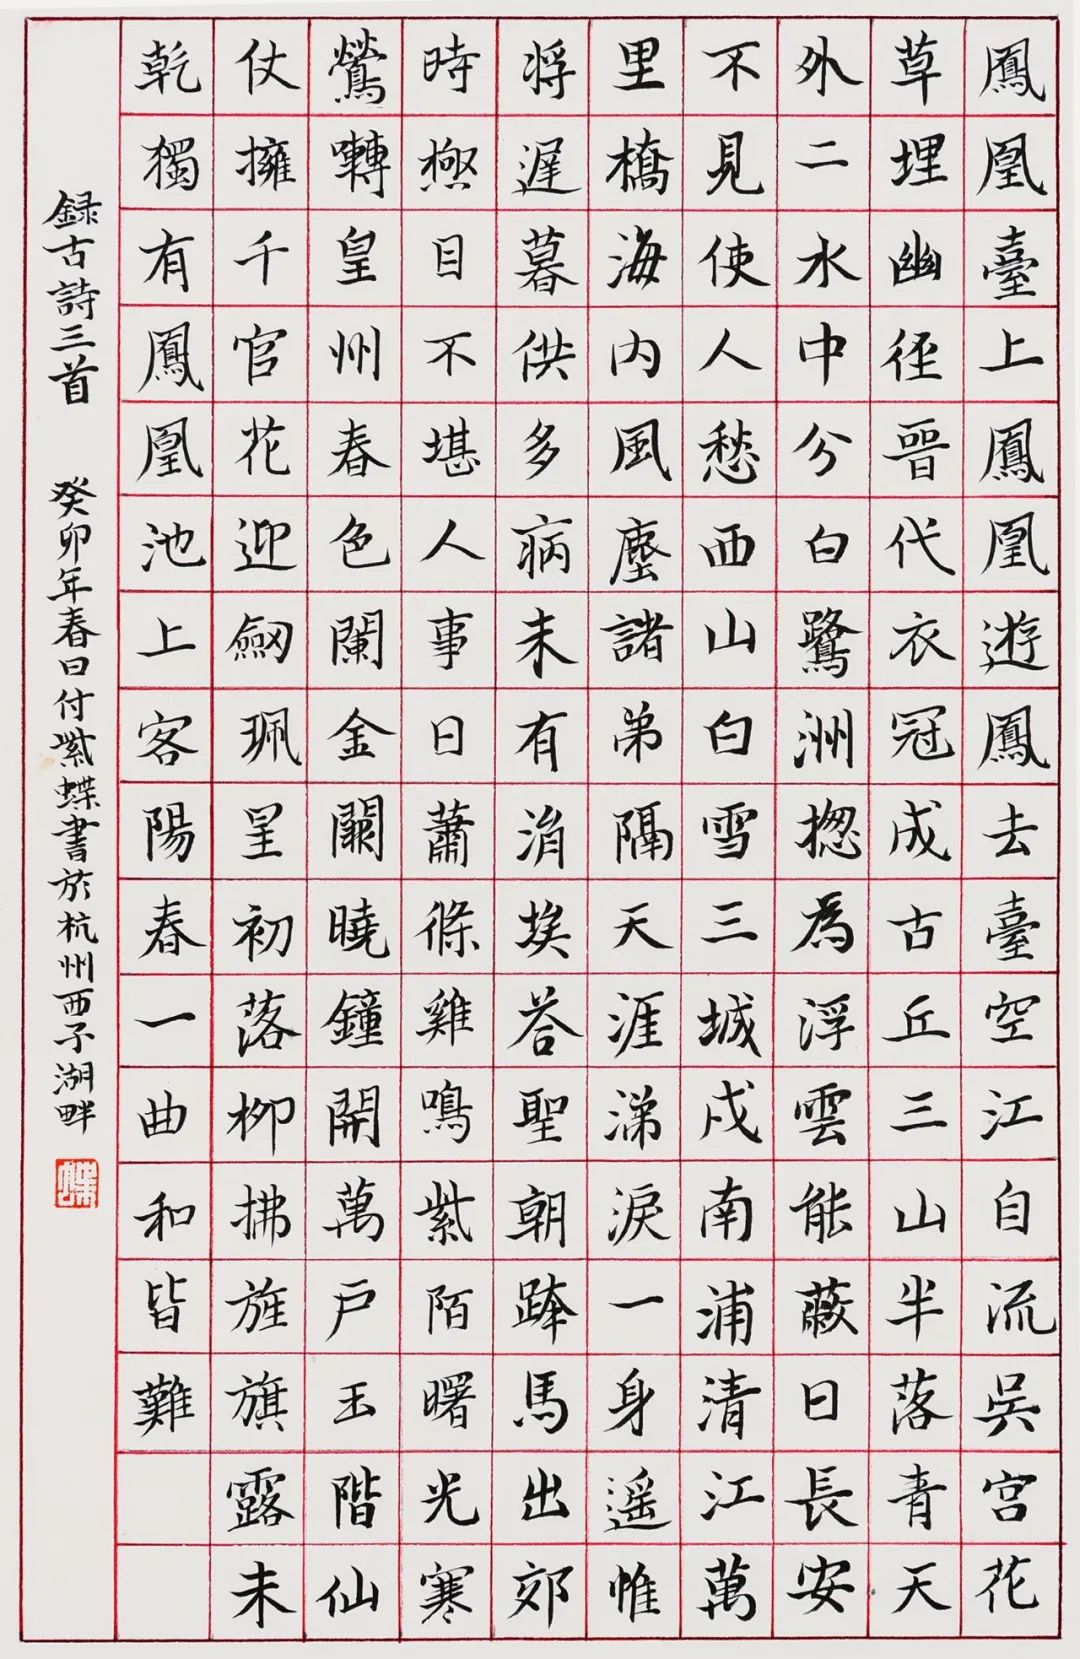 鳳凰臺上鳳凰遊鳳去臺空江自流吳宮花
草埋幽徑晉代衣冠成古丘三山半落青天
外二水中分白鷺洲揔為浮雲能蔽日長安
不見使人愁西山白雪三城戍南浦清江萬
里橋海內風塵諸弟隔天涯涕淚一身遥惟
將遲暮供多病未有涓埃荅聖朝跨馬出郊
時極目不堪人事日蕭條雞鳴紫陌曙光寒
鶯囀皇州春色闌金闕曉鐘開萬戶玉階仙
仗擁千官花迎劔珮星初落柳拂旌旗露未
乾獨有鳳凰池上客陽春一曲和皆難
録古詩三首 癸卯年春日付紫蝶書於杭州西子湖畔
蝶